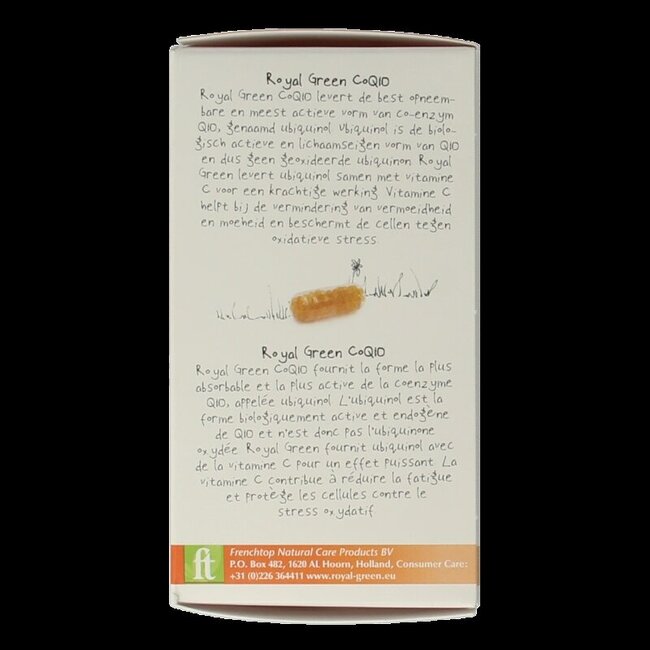 Royal Green CoQ10
Royal Green CoQ10 levert de best opneem-
bare en meest actieve vorm van co-enzym
Q10, genaamd ubiquinol. Ubiquinol is de biolo-
gisch actieve en lichaamseigen vorm van Q10
en dus geen geoxideerde ubiquinon. Royal
Green levert ubiquinol samen met vitamine
C voor een krachtige werking. Vitamine C
helpt bij de vermindering van vermoeidheid
en moeheid en beschermt de cellen tegen
oxidatieve stress.
Royal Green CoQ10
Royal Green CoQ10 fournit la forme la plus
absorbable et la plus active de la coenzyme
Q10, appelée ubiquinol. L'ubiquinol est la
forme biologiquement active et endogène
de Q10 et n'est donc pas l'ubiquinone
oxydée. Royal Green fournit ubiquinol avec
de la vitamine C pour un effet puissant. La
vitamine C contribue à réduire la fatigue
et protège les cellules contre le
stress oxydatif
ft
Frenchtop Natural Care Products BV
P.O. Box 482, 1620 AL Hoorn, Holland, Consumer Care:
+31 (0)226 364411 www.royal-green.eu